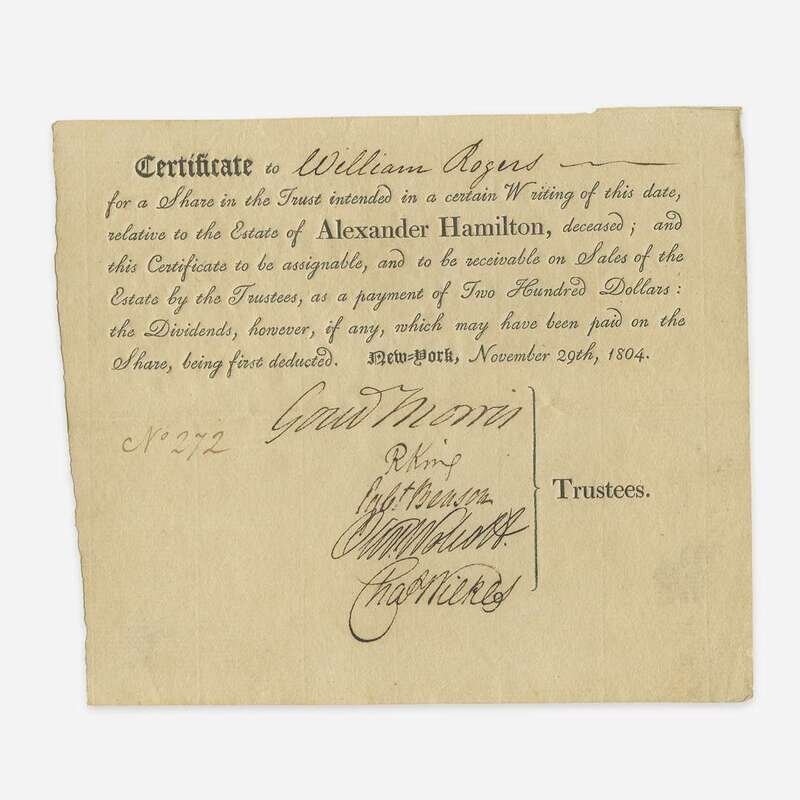 Certificate to William Rogers
for a Share in the Trust intended in a certain Writing of this date,
relative to the Estate of Alexander Hamilton, deceased; and
this Certificate to be assignable, and to be receivable on Sales of the
Estate by the Trustees, as a payment of Two Hundred Dollars:
the Dividends, however, if any, which may have been paid on the
Share, being first deducted. New-York, November 29th, 1804.
Gouv Morris
No 272
R King
Egbt Benson
Trustees.
Oliv. Wolcott.
Chas Wilkes